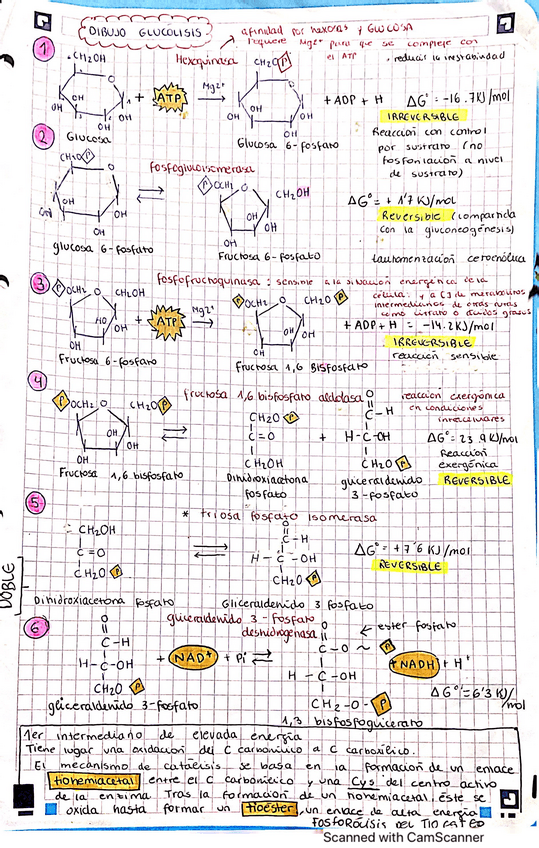 DIBUJO GLUCOLISIS
afinidad por hexosas y GLUCOSA
requiere Mg2+ para que se compleje con
el ATP, reducir la inestabilidad
1
CH2OH
Hexoquinasa
CH2O P
O
+ ATP
Mg2+
+ ADP + H
ΔG°= -16.7KJ/mol
OH
IRREVERSIBLE
Glucosa
Glucosa 6-fosfato
Reacción con control
por sustrato (no
fosforilación a nivel
de sustrato)
2
CH2O P
fosfoglucoisomerasa
P OCH2
O
CH2OH
OH
ΔG°= + 1'7 KJ/mol
Reversible (compartida
con la gluconeogénesis)
glucosa 6-fosfato
Fructosa 6-fosfato
tautomerización cetoenólica
3
fosfofructoquinasa: sensible a la situación energética de la
célula: y a [] de metabolitos
intermediarios de otras rutas
como citrato o ácidos grasos
P OCH2
O
CH2OH
HO
OH
+ ATP
Mg2+
P OCH2
O
CH2O P
OH
+ ADP + H = -14.2KJ/mol
IRREVERSIBLE
reacción sensible
Fructosa 6-fosfato
Fructosa 1,6 Bisfosfato
4
fructosa 1,6 bisfosfato aldolasa
reacción exergónica
en condiciones
intracelulares
P OCH2
O
CH2O P
OH
CH2O P
C=O
CH2OH
+
O
C-H
H-C-OH
CH2O P
ΔG°= 23.9KJ/mol
Reacción
exergónica
REVERSIBLE
Fructosa 1,6 bisfosfato
Dihidroxiacetona
fosfato
gliceraldenido
3-fosfato
5
* triosa fosfato isomerasa
CH2OH
C=O
CH2O P
O
C-H
H-C-OH
CH2O P
ΔG°= +7'6 KJ/mol
REVERSIBLE
DOBLE
Dihidroxiacetona fosfato
Gliceraldenido 3 fosfato
6
gliceraldenido 3-fosfato
deshidrogenasa
ester fosfato
O
C-H
H-C-OH
CH2O P
+ NAD+ + Pi
O
C-O ~ P
H-C-OH
CH2-O- P
+ NADH + H+
ΔG°'=6'3 KJ/
mol
gliceraldenido 3-fosfato
1,3 bisfosfoglicerato
1er intermediario de elevada energía
Tiene lugar una oxidación del C carbonílico a C carboxílico.
El mecanismo de catálisis se basa en la formación de un enlace
tiohemiacetal entre el C carbonílico y una Cys del centro activo
de la enzima. Tras la formación de un tiohemiacetal, éste se
oxida hasta formar un tioéster, un enlace de alta energía
FOSFOROLISIS DEL TIOESTER
Scanned with CamScanner